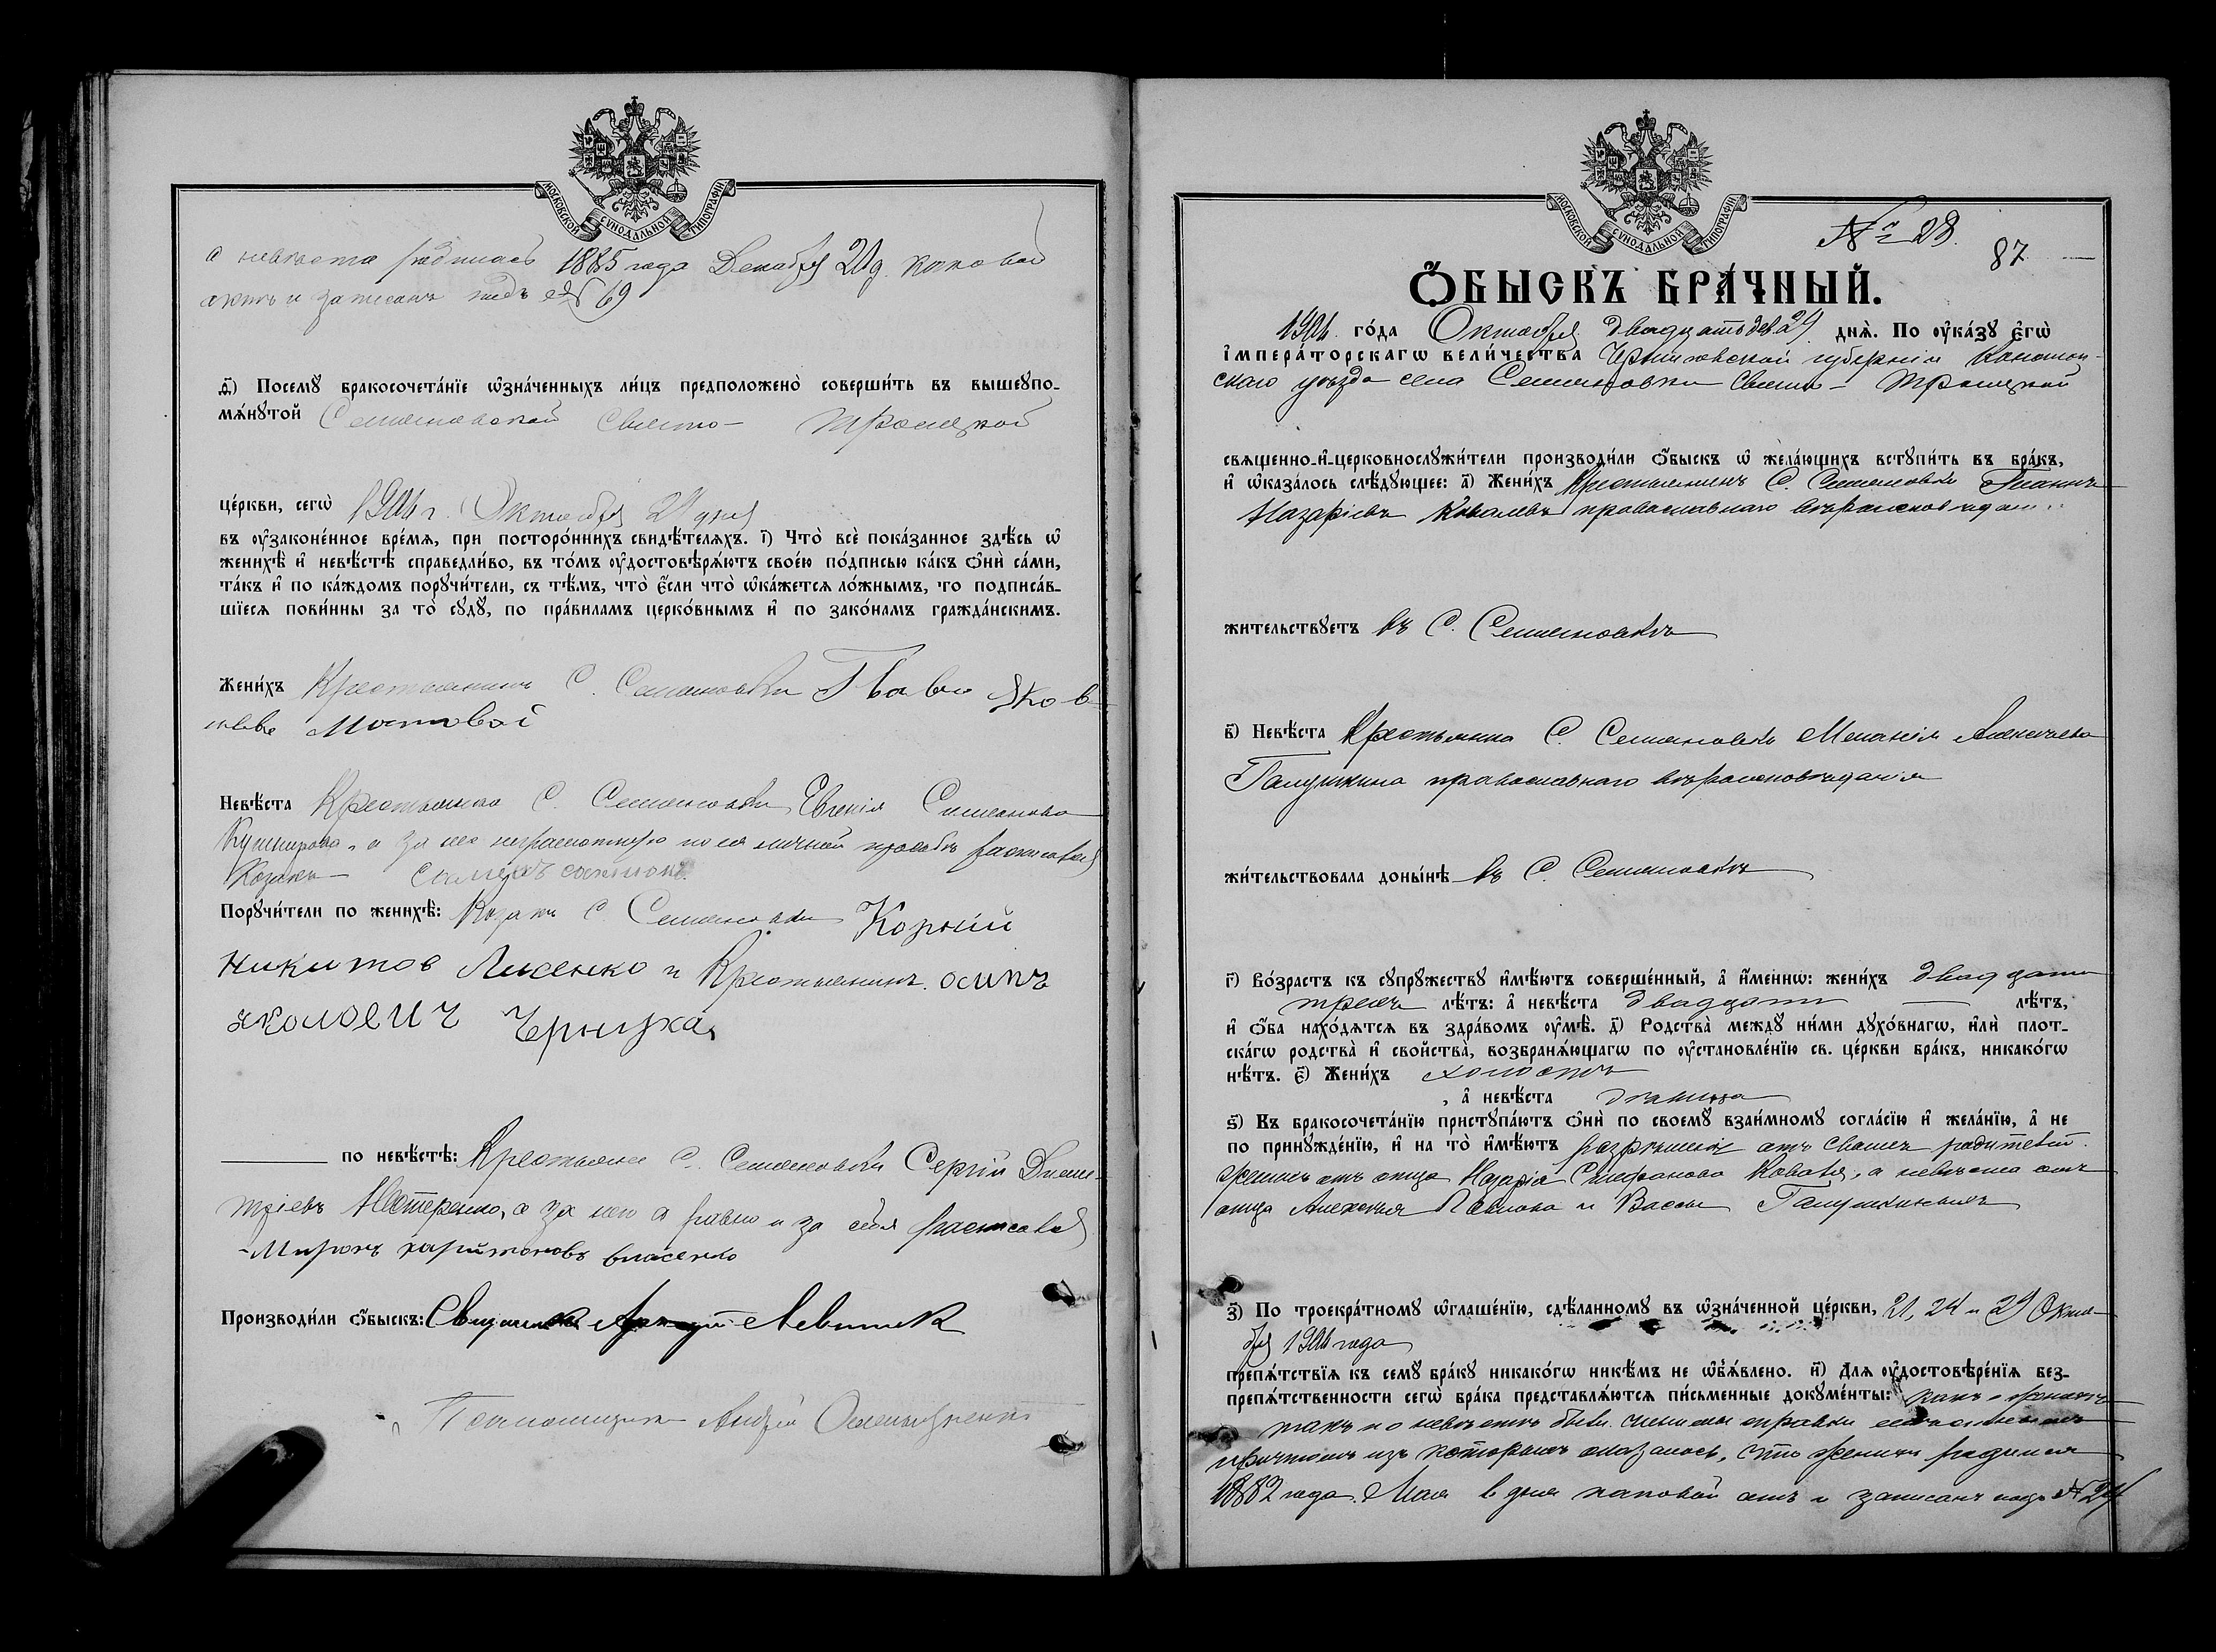 МОСКОВСКОЙ СѴНОДАЛЬНОЙ ТИПОГРАФІИ
а невѣста родилась 1885 года Декабря 21 д. каковой
актъ и записанъ подъ № 69
д҃) Посемꙋ бракосочета́нїе ѡ҆зна́ченныхъ ли́цъ предположено̀ соверши́ть въ вышеꙋпо-
мѧ́нꙋтой Семеновской Свято- Троицкой
це́ркви, сегѡ̀ 1904 г. Октября дня
въ ᲂу҆законе́нное вре́мѧ, при посторо́ннихъ свидѣ́телѧхъ. і҃) Что̀ всѐ пока́занное здѣ́сь ѡ҆
женихѣ̀ и҆ невѣ́стѣ справедли́во, въ то́мъ ᲂу҆достовѣрѧ́ютъ свое́ю по́дписью ка́къ ѻ҆нѝ са́ми,
та́къ и҆ по ка́ждомъ порꙋчи́тели, съ тѣ́мъ, что̀ є҆́сли что̀ ѡ҆ка́жетсѧ ло́жнымъ, то подписа́в-
шїесѧ пови́нны за то̀ сꙋдꙋ̀, по пра́виламъ церко́внымъ и҆ по зако́намъ гражда́нскимъ.
Жени́хъ Крестьянинъ С. Семеновки Яков-
левъ Мостовой
Невѣ́ста Крестьянка С. Семеновки Евгенія Симеонова
Кушнирова, а за нее неграмотную по ея личной просьбѣ расписался
Козакъ
Порꙋчи́тели по женихѣ̀: Козакъ С. Семеновки Корній
Никитов Лисенко и Крестьянинъ осипъ
яколович
по невѣ́стѣ: Крестьяне С. Семеновки Сергій Дими-
тріевъ Нестеренко, а за него а равно и за себя расписался
Миронъ харитоновъ власенко
Производи́ли ѻ҆́быскъ: Священникъ Левицкій
Псаломщикъ Андрей
МОСКОВСКОЙ СѴНОДАЛЬНОЙ ТИПОГРАФІИ
№ 28.
87
Ѻ҆́БЫСКЪ БРА́ЧНЫЙ.
1904 го́да Октября двадцать дев. 29 днѧ̀. По ᲂу҆ка́зꙋ є҆гѡ̀
і҆мпера́торскагѡ вели́чества Черниговской губерніи Конотоп-
скаго уѣзда села Семеновки Свято- Троицкой
свѧщенно-и҆-церковнослꙋжи́тели производи́ли ѻ҆́быскъ ѡ҆ жела́ющихъ встꙋпи́ть въ бра́къ,
и҆ ѡ҆каза́лось слѣ́дꙋющее: а҃) Жени́хъ Крестьянинъ С. Семеновки Іоаннъ
Назаріевъ Ковалевъ православнаго вѣроисповѣдан.
жительствꙋетъ въ С. Семеновкѣ
в҃) Невѣ́ста Крестьянка С. Семеновки Меланія Алексѣева
Галушкина православнаго вѣроисповѣданія
жи́тельствовала доны́нѣ въ С. Семеновкѣ
г҃) Во́зрастъ къ сꙋпрꙋ́жествꙋ и҆мѣ́ютъ соверше́нный, а҆ и҆́менно: жени́хъ двадцати
трехъ лѣ́тъ: а҆ невѣ́ста двадцати лѣ́тъ,
и҆ ѻ҆́ба нахо́дѧтсѧ въ здра́вомъ ᲂу҆мѣ̀. д҃) Родства̀ междꙋ̀ ни́ми дꙋхо́внагѡ, и҆лѝ плот-
ска́гѡ родства̀ и҆ сво́йства̀, возбранѧ́ющагѡ по ᲂу҆становле́нїю св. це́ркви бра́къ, никако́гѡ
нѣ́тъ. є҃) Жени́хъ холостъ
, а҆ невѣ́ста дѣвица
ѕ҃) Къ бракосочета́нїю пристꙋпа́ютъ ѻ҆нѝ по своемꙋ̀ взаи́мномꙋ согла́сїю и҆ жела́нїю, а҆ не
по принꙋжде́нїю, и҆ на то̀ и҆мѣ́ютъ разрѣшеніе отъ своихъ родителей.
женихъ отъ отца Назарія Стефанова Коваля, а невѣста отъ
отца Алексѣя Павлова и Вассы Галушкиныхъ
з҃) По троекра́тномꙋ ѡ҆глаше́нїю, сдѣ́ланномꙋ въ ѡ҆зна́ченной це́ркви, 21, 24 и 29 Октя-
бря 1904 года
препѧ́тствїѧ къ семꙋ̀ бра́кꙋ никако́гѡ никѣ́мъ не ѡ҆б̾ѧ́влено. и҃) Для ᲂу҆достовѣре́нїѧ без-
препѧ́тственности сегѡ̀ бра́ка представлѧ́ютсѧ пи́сьменные докꙋме́нты: какъ о женихѣ
такъ и о невѣстѣ были справки
причтомъ изъ которыхъ оказалось, что женихъ родился
1882 года. Мая 6 дня каковой актъ и записанъ подъ № 24